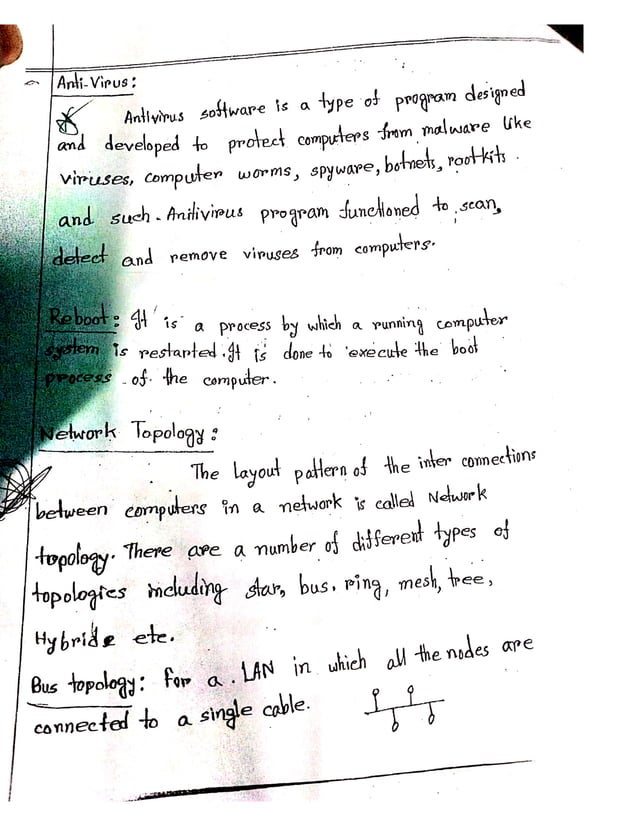 Anti-Virus:
Antivirus software is a type of program designed
and developed to protect computers from malware like
viruses, computer worms, spyware, botnets, rootkits.
and such. Anilivirus program functioned to scan,
detect and remove viruses from computers.
Reboot: It is a process by which a running computer
system is restarted. It is done to execute the boot
process of the computer.
Network Topology:
The layout pattern of the inter connections
between computers in a network is called Network
topology. There are a number of different types of
topologies including star, bus, ring, mesh, tree,
Hybride etc.
Bus topology: For a LAN in which all the nodes are
connected to a single cable.